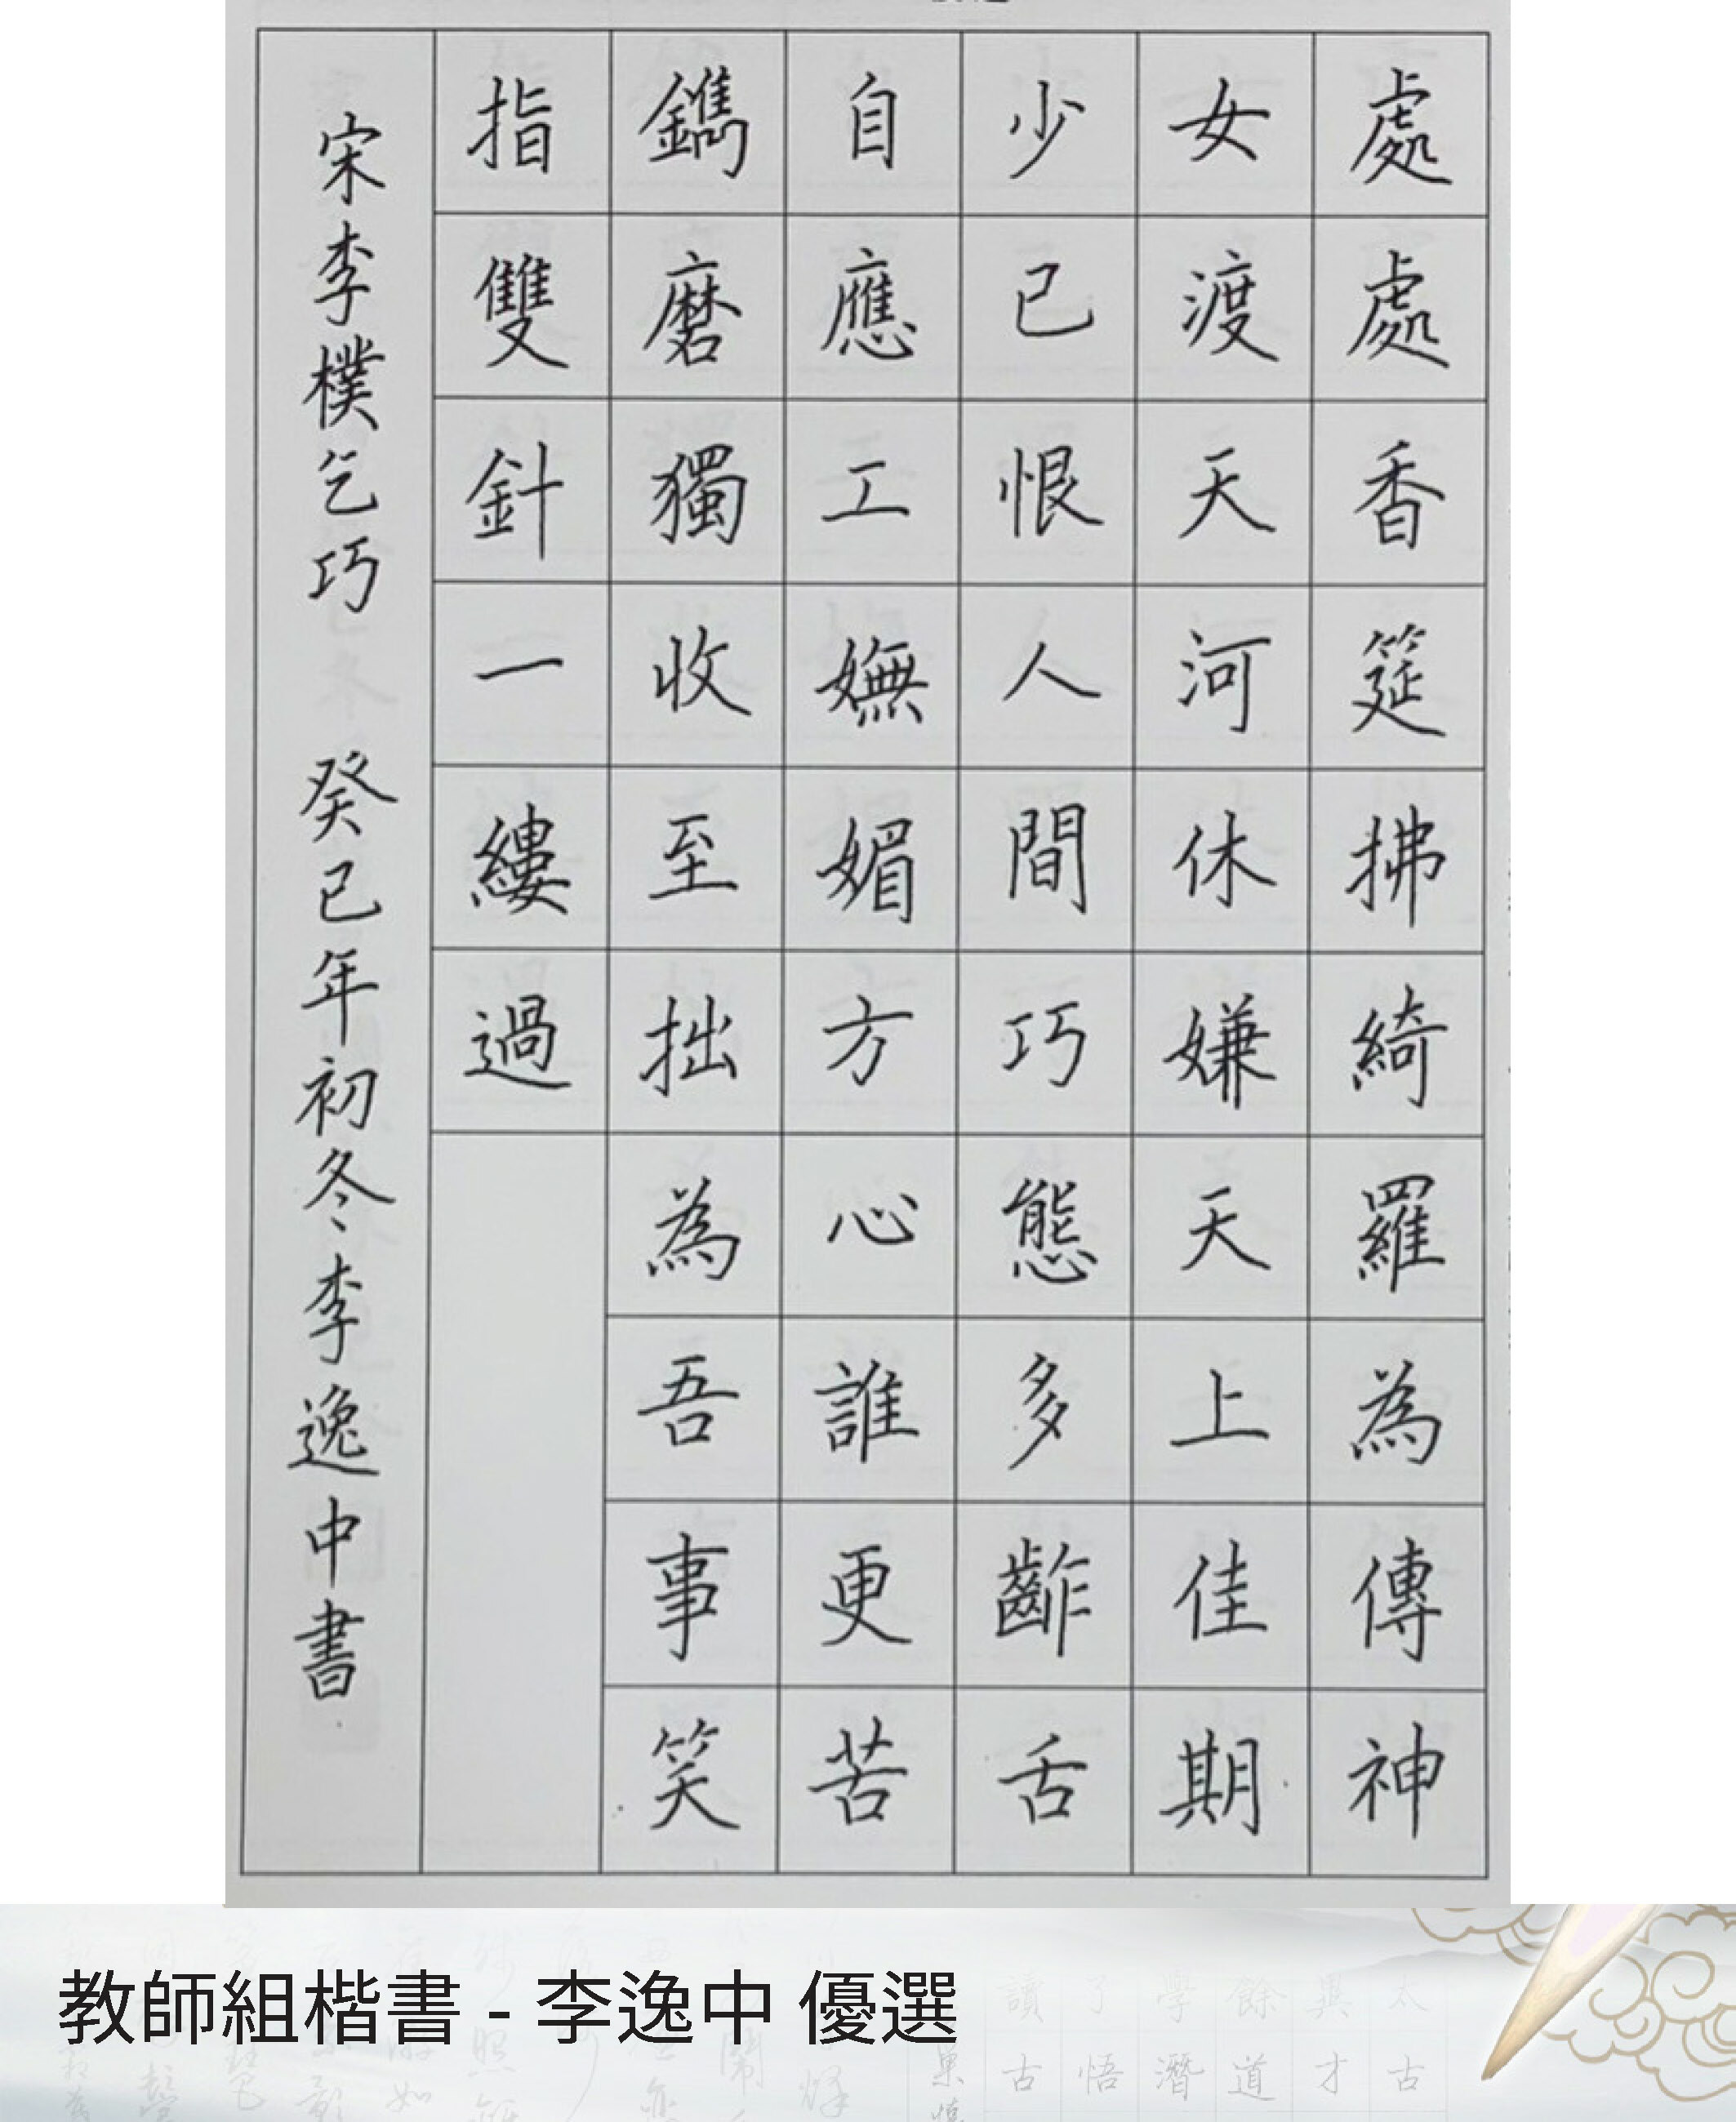 處處香筵拂綺羅為傳神
女渡天河休嫌天上佳期
少已恨人間巧態多齚舌
自應工嫵媚方心誰更苦
鐫磨獨收至拙為吾事笑
指雙針一縷過
宋李樸乞巧 癸已年初冬李逸中書
教師組楷書 - 李逸中 優選